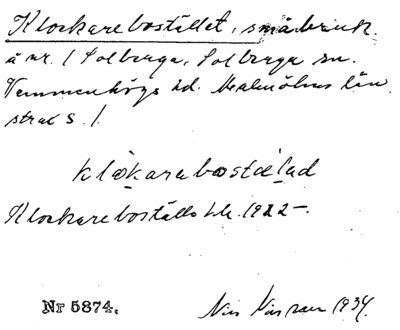 Klockarebostället, småbruk.
å nr. 1 Solberga, Solberga sn.
Vemmenhögs hd. Malmöhus län
strax S. 1.
klåkarabostälad
Klockareboställe 1922–.
Nr 5874.
Nils 1934.